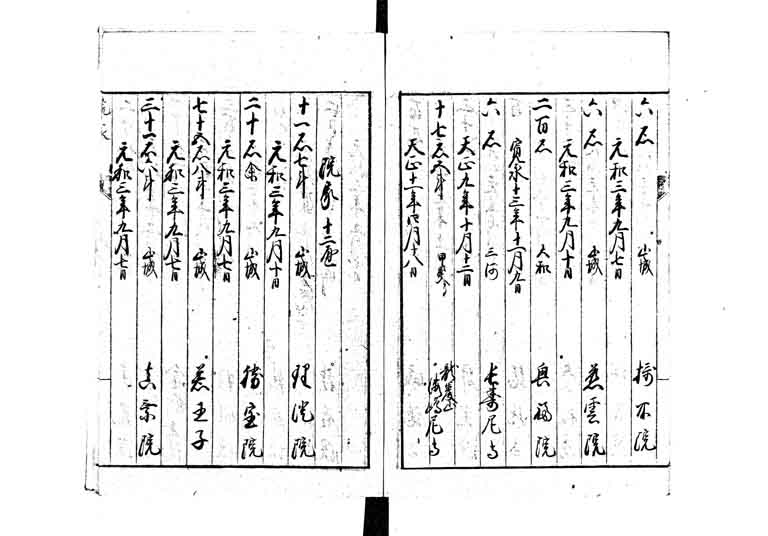 六石 山城
元和三年九月七日
六石 山城 慈雲院
元和三年九月十日
二百石 大和 興福院
寛永十三年十一月九日
六石 三河 長壽尼寺
天正九年十月十二日
十七石 甲斐
天正十一年四月十八日
院家
十一石七斗 山城 理證院
元和三年九月十日
二十石余 山城 勝室院
元和三年九月七日
七十五石八斗 山城 若王子
元和三年九月七日
三十一石八斗 山城 真乘院
元和三年九月七日